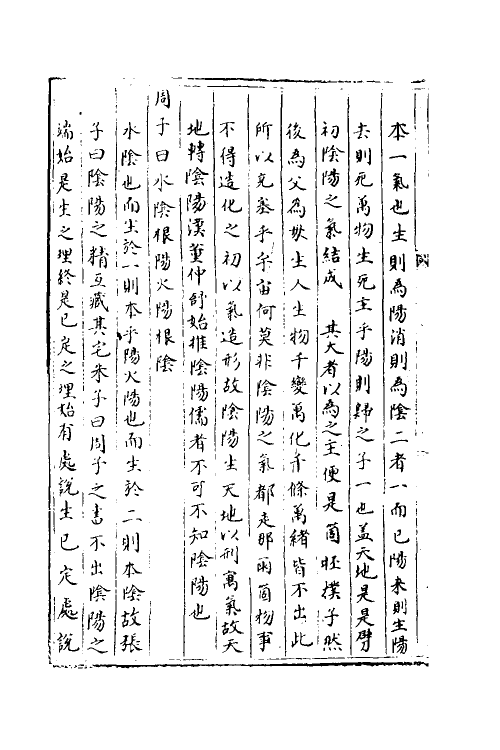 本一氣也生則為陽消則為陰二者一而已陽来則生陽
去則死萬物生死主乎陽則歸之子一也盖天地是是劈
初陰陽之氣結成 其大者以為之主便是箇胚撲子然
後為父為母生人生物千變萬化千條萬緒皆不出此
所以充塞乎宇宙何莫非陰陽之氣都走那兩箇物事
不得造化之初以氣造形故陰陽生天地以形寓氣故天
地轉陰陽漢董仲舒始推陰陽儒者不可不知陰陽也
周子曰水陰根陽火陽根陰
水陰也而生於一則本乎陽火陽也而生於二則本陰故張
子曰陰陽之精互藏其宅朱子曰周子之書不出陰陽之
端始是生之理終是已定之理始有處說生已定處說